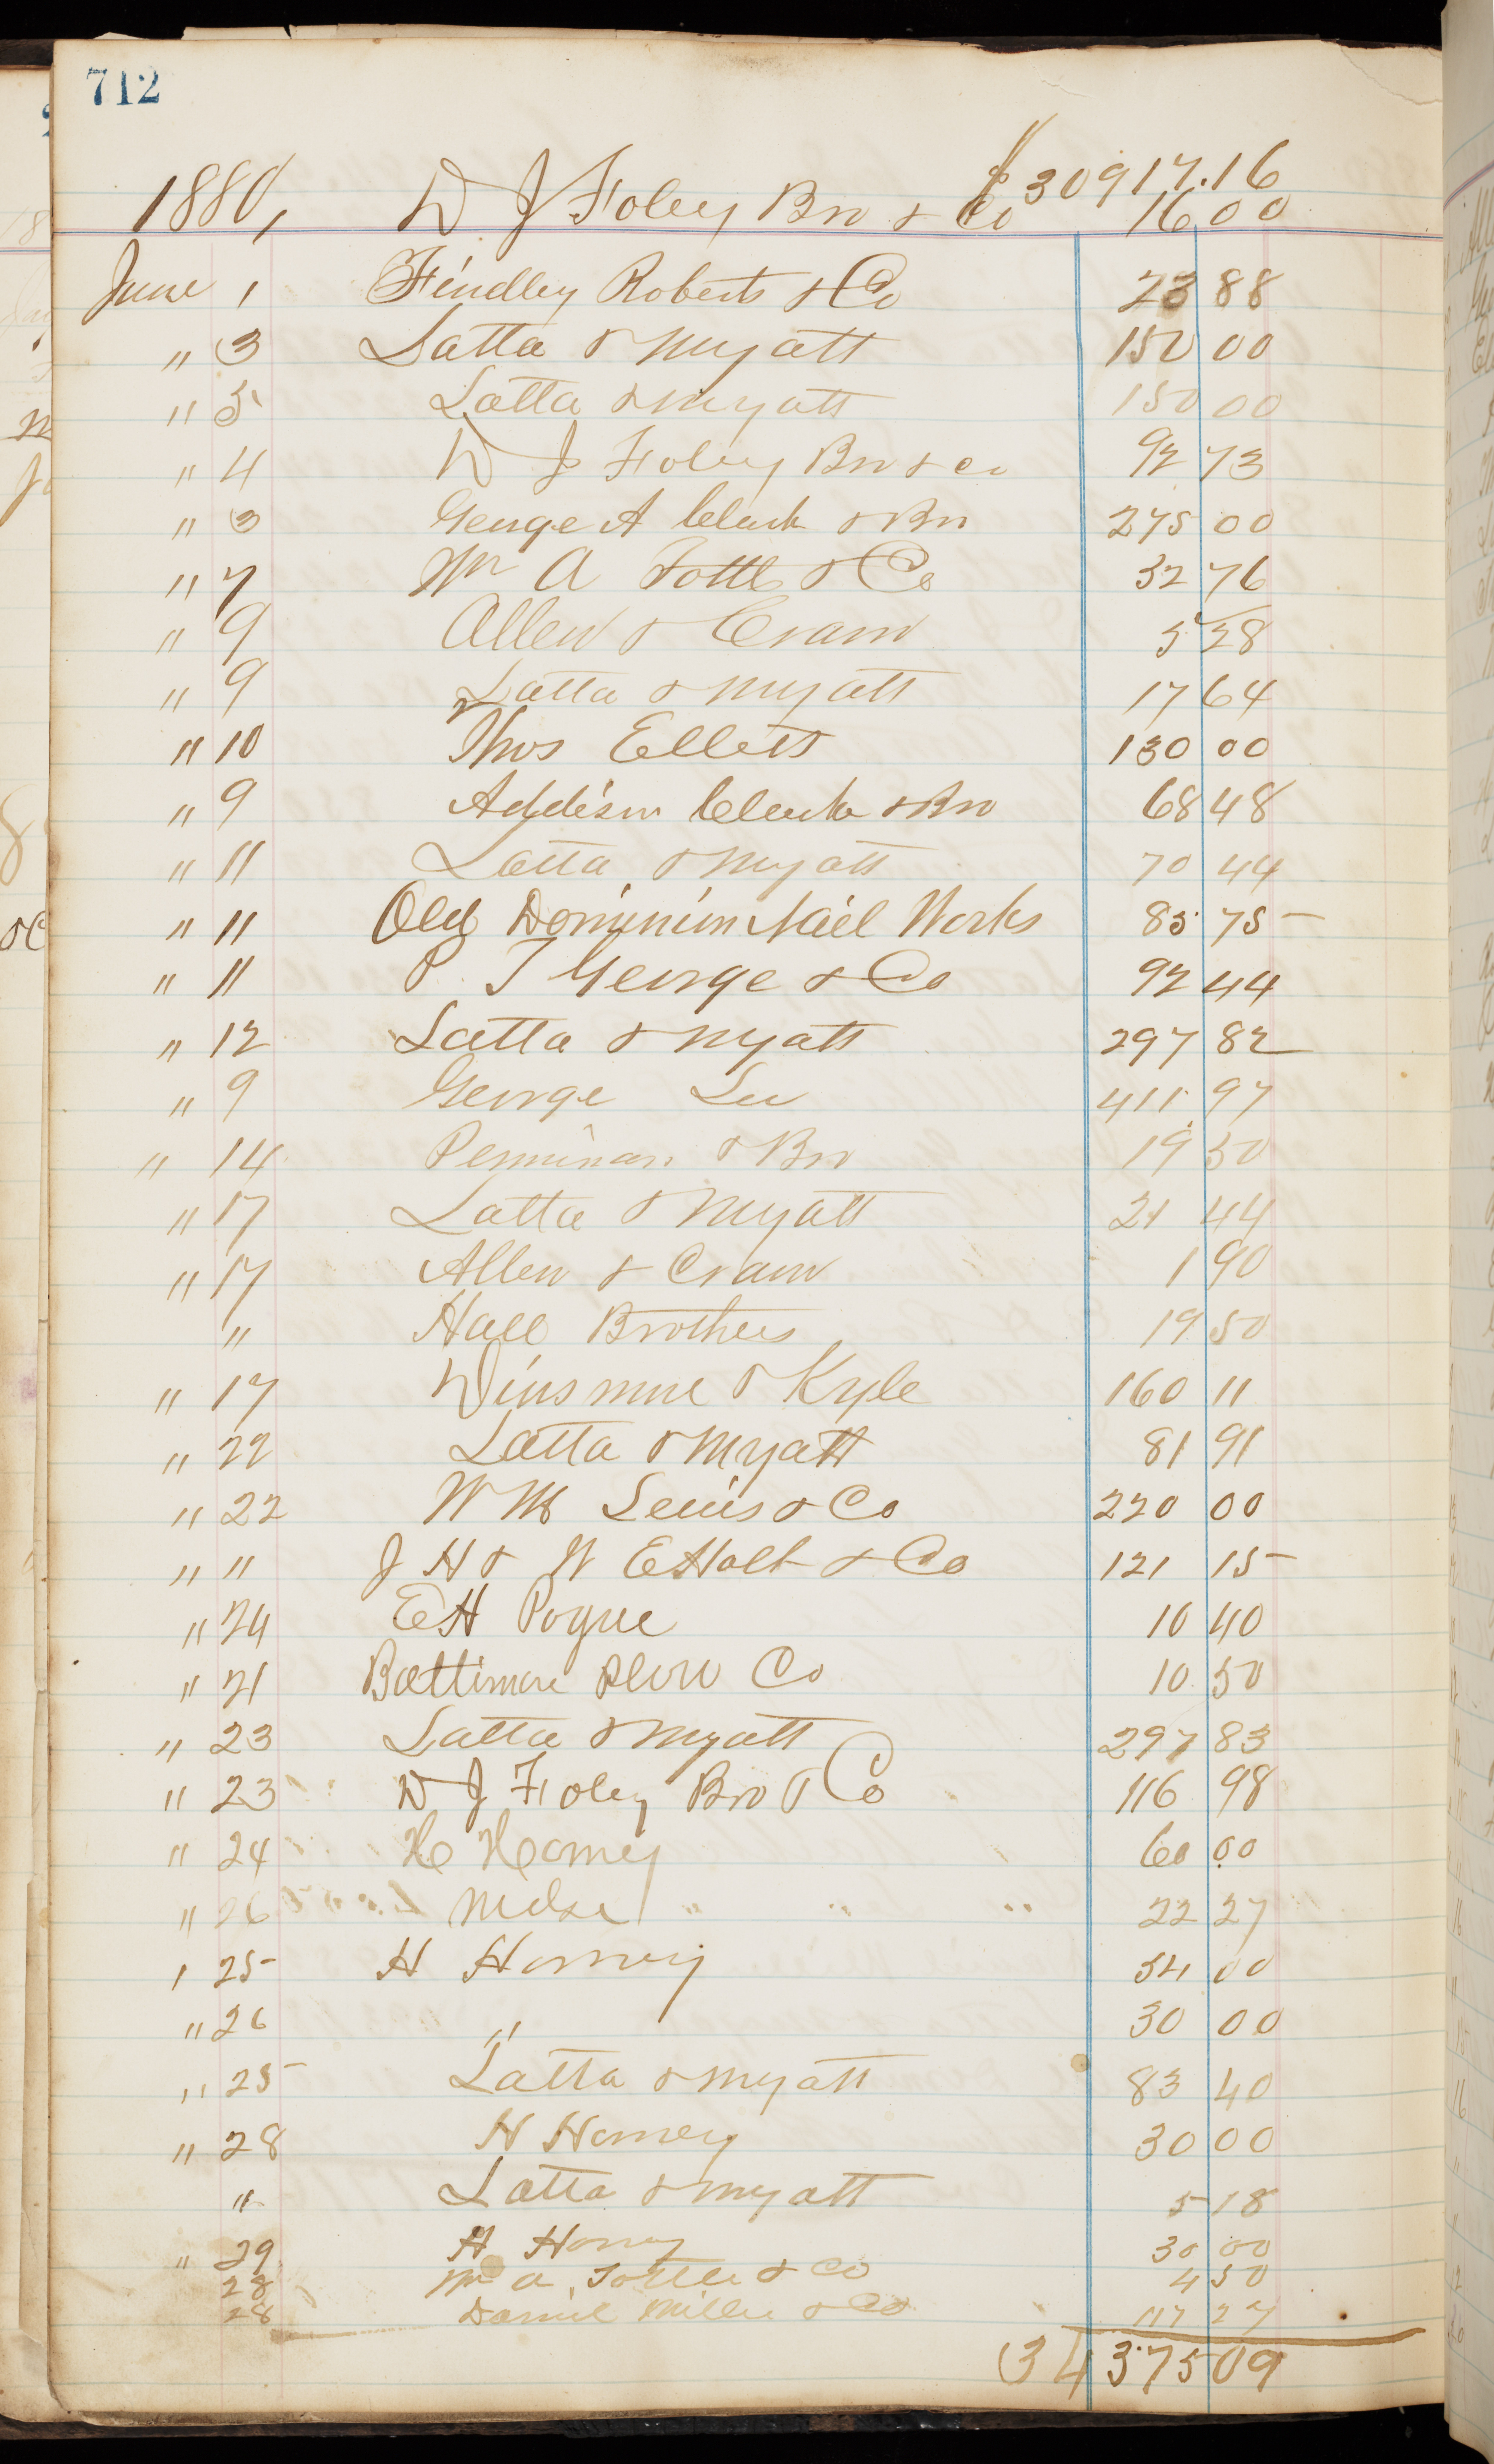 712
$30917.16
1880, D J Foley Bro & Co 16 00
June 1 Findley Roberts & Co 23 88
" 3 Latta & Myatt 150 00
" 5 Latta & Myatt 150 00
" 4 D J Foley Bro & Co 92 73
" 3 George A Clark & Bro 275 00
" 7 Wm A Tottle & Co 32 76
" 9 Allen & Cram 5 28
" 9 Latta & Myatt 17 64
" 10 Thos Ellett 130 00
" 9 Addison Clark & Bro 68 48
" 11 Latta & Myatt 70 44
" 11 Old Dominion Nail Works 85 75
" 11 P T George & Co 92 44
" 12 Latta & Myatt 297 82
" 9 George Lee 411 97
" 14 Penniman & Bro 19 50
" 17 Latta & Myatt 21 44
" 17 Allen & Cram 1 90
" Hall Brothers 19 50
" 17 Winsmore & Kyle 160 11
" 22 Latta & Myatt 81 91
" 22 W M Lewis & Co 220 00
" " J H & W E Holt & Co 121 15
" 24 E H Pogue 10 40
" 21 Baltimore Plow Co 10 50
" 23 Latta & Myatt 297 83
" 23 D J Foley Bro & Co 116 98
" 24 H Horney 60 00
" 26 22 27
" 25 H Horney 34 00
" 26 " 30 00
" 25 Latta & Myatt 83 40
" 28 H Horney 30 00
" Latta & Myatt 5 18
" 29 H Horney 30 00
28 Wm A. Tottle & Co 4 50
28 Daniel Miller & Co 117 27
34375 09